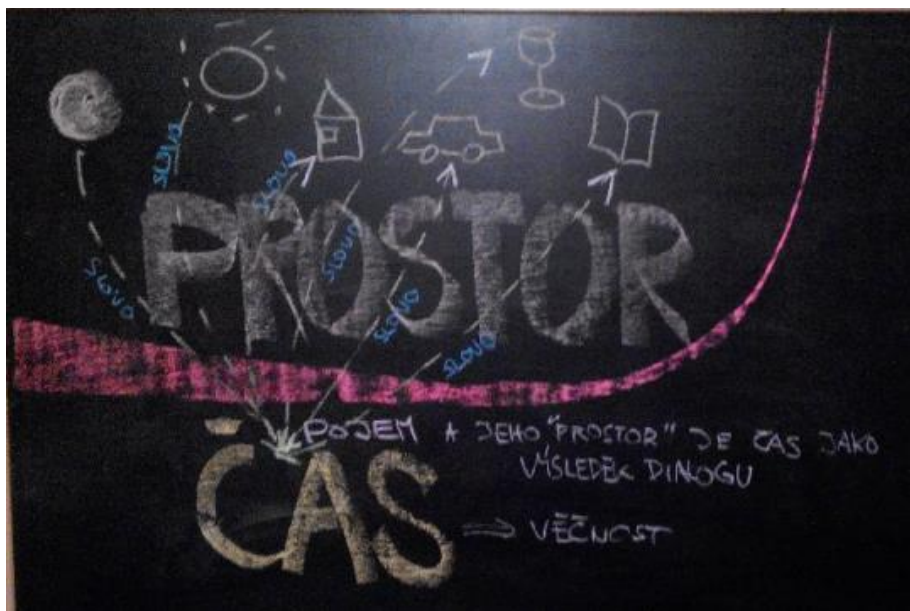 SLOVO
SLOVO
SLOVO
SLOVO
SLOVO
SLOVO
PROSTOR
POJEM A JEHO "PROSTOR" JE ČAS JAKO
VÝSLEDEK DIALOGU
ČAS
⇒ VĚČNOST